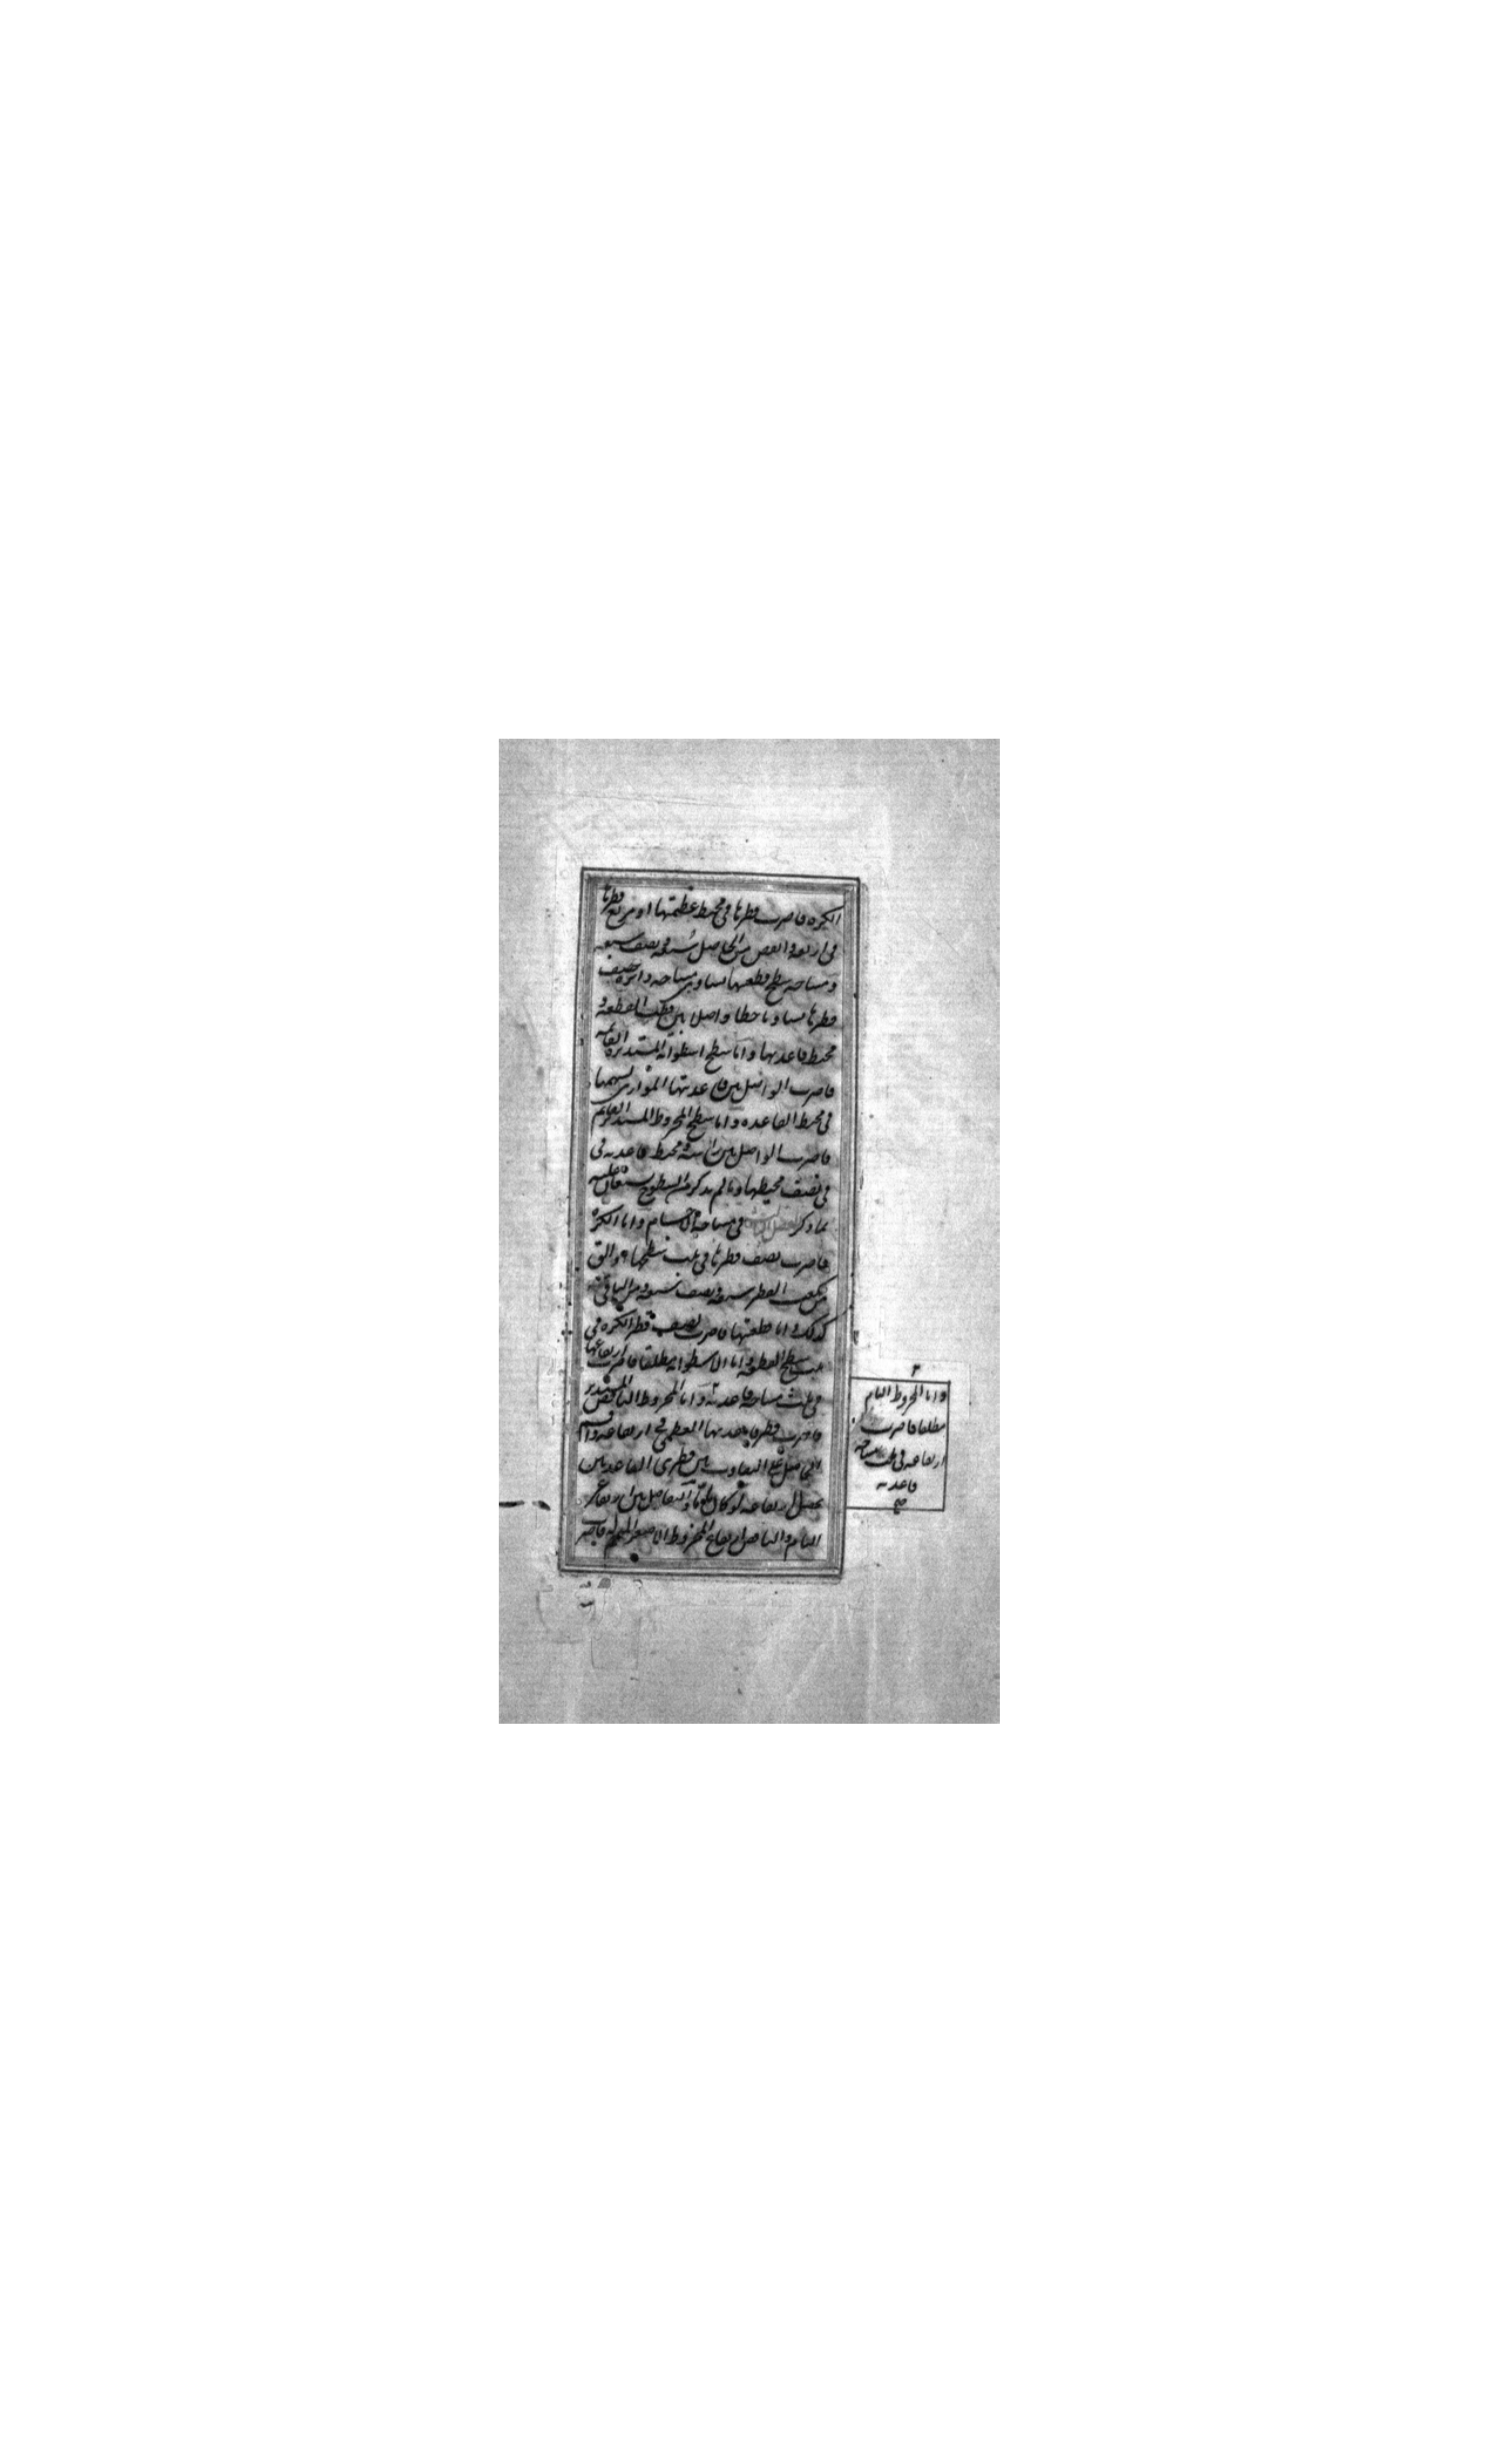 الكره فاضرب قطرها في محيط عظيمتها او مربع قطرها
في اربعة وانقص من الحاصل سبعه ونصف سبعه
ومساحه سطح قطعتها تساوي مساحه دائره نصف
قطرها تساوي خطا واصلا بين قطب القطعه و
محيط قاعدتها واما سطح اسطوانه المستديره القائمه
فاضرب الواصل بين قاعدتيها الموازي لسهمها
في محيط القاعده واما سطح المخروط المستدير القائم
فاضرب الواصل بين راسه ومحيط قاعدته في
في نصف محيطها وما لم يذكر من السطوح يستعان عليه
بما ذكر الفصل الثالث في مساحه الاجسام واما الكره
فاضرب نصف قطرها في ثلث سطحها او الق
من مكعب القطر سبعه ونصف سبعه ومن الباقي
كذلك واما قطعتها فاضرب نصف قطر الكره في
ثلث سطح القطعه واما الاسطوانه مطلقا فاضرب ارتفاعها
في مساحه قاعدته واما المخروط الناقص المستدير
فاضرب قطر قاعدتها العظمى في ارتفاعه واقسم
الحاصل على التفاوت بين قطري القاعدتين
يحصل ارتفاعه لو كان تاما والتفاضل بين ارتفاعي
التام والناقص ارتفاع المخروط الاصغر المتمم له فاضرب
٢
واما المخروط التام
مطلقا فاضرب
ارتفاعه في ثلث مساحه
قاعدته
صح